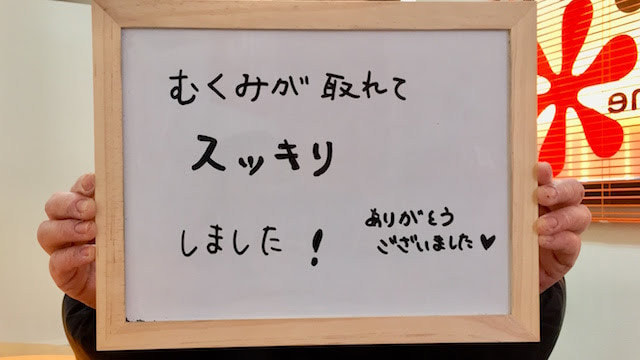 むくみが取れて
スッキリ
しました!
ありがとう
ございました♥
ne